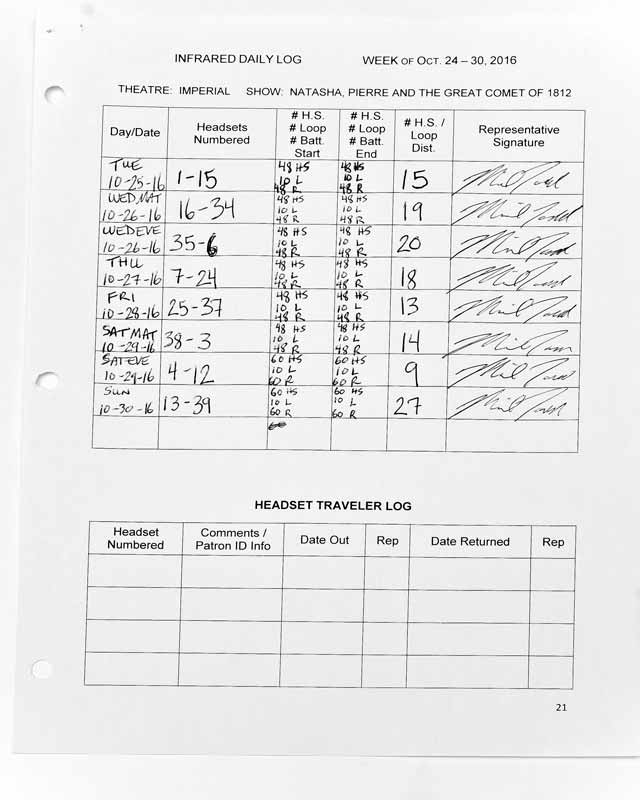 INFRARED DAILY LOG WEEK OF OCT. 24 – 30, 2016
THEATRE: IMPERIAL SHOW: NATASHA, PIERRE AND THE GREAT COMET OF 1812
Day/Date Headsets Numbered # H.S. # Loop # Batt. Start # H.S. # Loop # Batt. End # H.S. / Loop Dist. Representative Signature
TUE 10-25-16 1-15 48 HS 10 L 48 R 48 HS 10 L 48 R 15
WED MAT 10-26-16 16-34 48 HS 10 L 48 R 48 HS 10 L 48 R 19
WED EVE 10-26-16 35-6 48 HS 10 L 48 R 48 HS 10 L 48 R 20
THU 10-27-16 7-24 48 HS 10 L 48 R 48 HS 10 L 48 R 18
FRI 10-28-16 25-37 48 HS 10 L 48 R 48 HS 10 L 48 R 13
SAT MAT 10-29-16 38-3 48 HS 10 L 48 R 48 HS 10 L 48 R 14
SAT EVE 10-29-16 4-12 60 HS 10 L 60 R 60 HS 10 L 60 R 9
SUN 10-30-16 13-39 60 HS 10 L 60 R 60 HS 10 L 60 R 27
HEADSET TRAVELER LOG
Headset Numbered Comments / Patron ID Info Date Out Rep Date Returned Rep
21